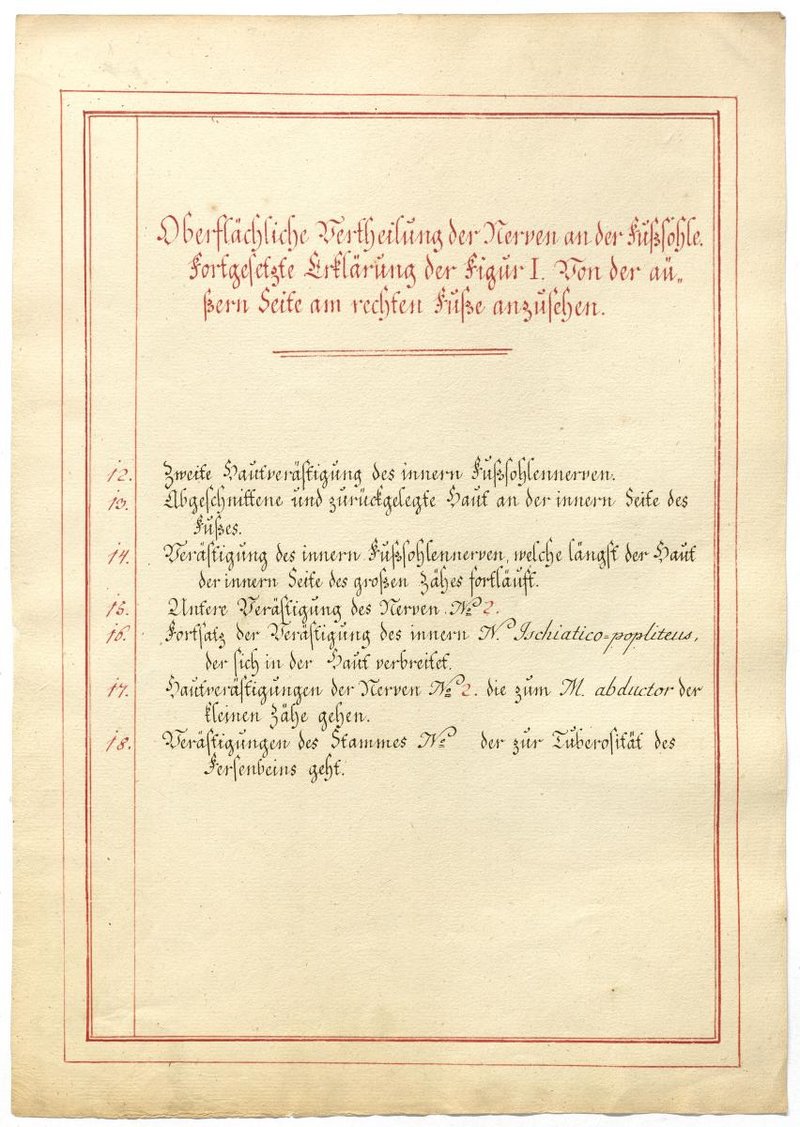 Oberflächliche Vertheilung der Nerven an der Fußsohle.
Fortgesetzte Erklärung der Figur I. Von der äu„
ßern Seite am rechten Fuße anzusehen.
12. Zweite Hautverästigung des innern Fußsohlennerven.
13. Abgeschnittene und zurückgelegte Haut an der innern Seite des
Fußes.
14. Verästigung des innern Fußsohlennerven, welche längst der Haut
der innern Seite des großen Zähes fortläuft.
15. Untere Verästigung des Nerven No 2.
16. Fortsatz der Verästigung des innern N. Ischiatico=popliteus,
der sich in der Haut verbreitet.
17. Hautverästigungen der Nerven No 2. die zum M. abductor der
kleinen Zähe gehen.
18. Verästigungen des Stammes No der zur Tuberosität des
Fersenbeins geht.